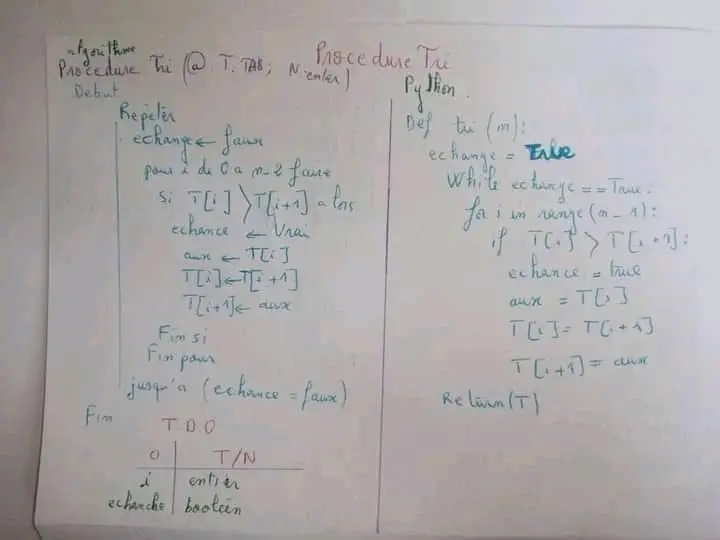 algorithme
Procedure Tri (@ T. TAB; N entier)
Debut
Repeter
echange ← faux
pour i de 0 a n-2 faire
si T[i] > T[i+1] alors
echance ← Vrai
aux ← T[i]
T[i] ← T[i+1]
T[i+1] ← aux
Fin si
Fin pour
jusqu'a (echance = faux)
Fin
T D O
O | T/N
i | entier
echanche | booleén
Procedure Tri
Python.
Def tri (n):
echange =
While echange == True.
for i in range (n-1):
if T[i] > T[i+1]:
echance = true
aux = T[i]
T[i] = T[i+1]
T[i+1] = aux
Return (T)